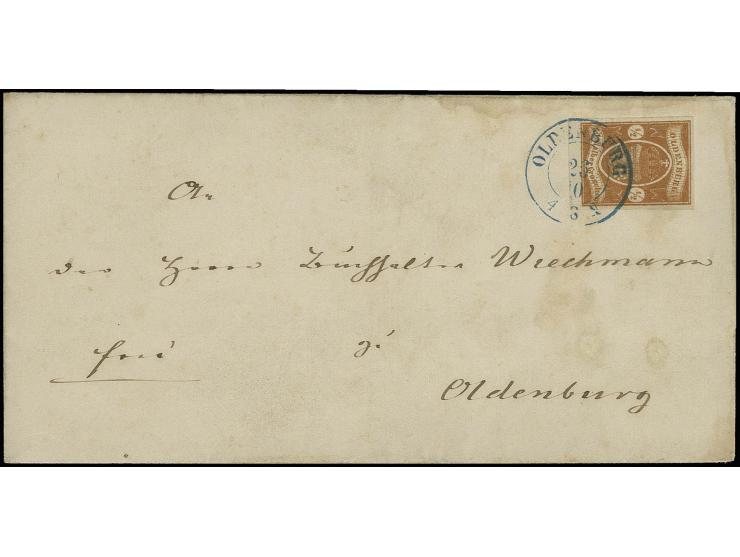 OLDENBURG
OLDENBURG
An
den Herrn Buchhalter Wiechmann
frei
zu
Oldenburg